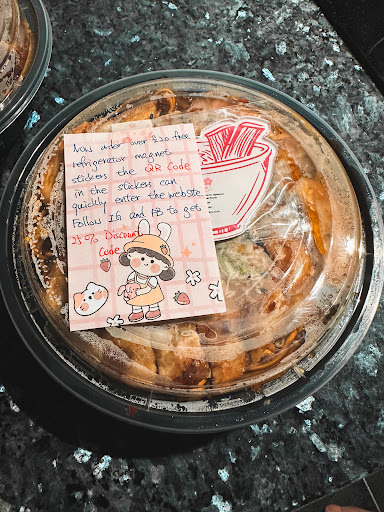 Now order over $20 free
refrigerator magnet
stickers the QR Code
in the stickers can
quickly enter the website
Follow IG and FB to get
25% Discount
Code